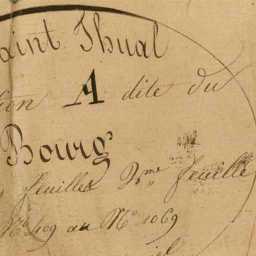 aint Thual
ion A dite du
Bourg
feuilles 2me feuille
No 409 au No 1069